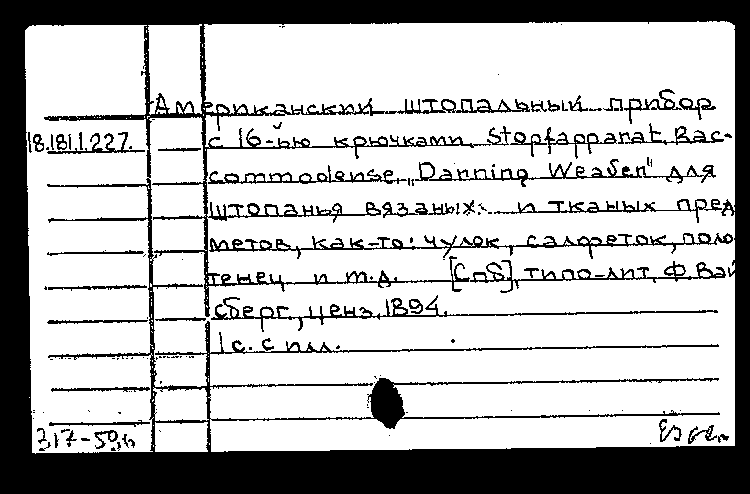 Американский штопальный прибор
18.181.1.227. с 16-ью крючками. Stopfapparat. Rac-
commodense. „Danning Weaven" для
штопанья вязаных и тканых пред
метов, как-то: чулок, салфеток, поло
тенец и т.д. [Спб], типо-лит. Ф. Вай
сберг, ценз. 1894.
1 с. с илл.
317-59